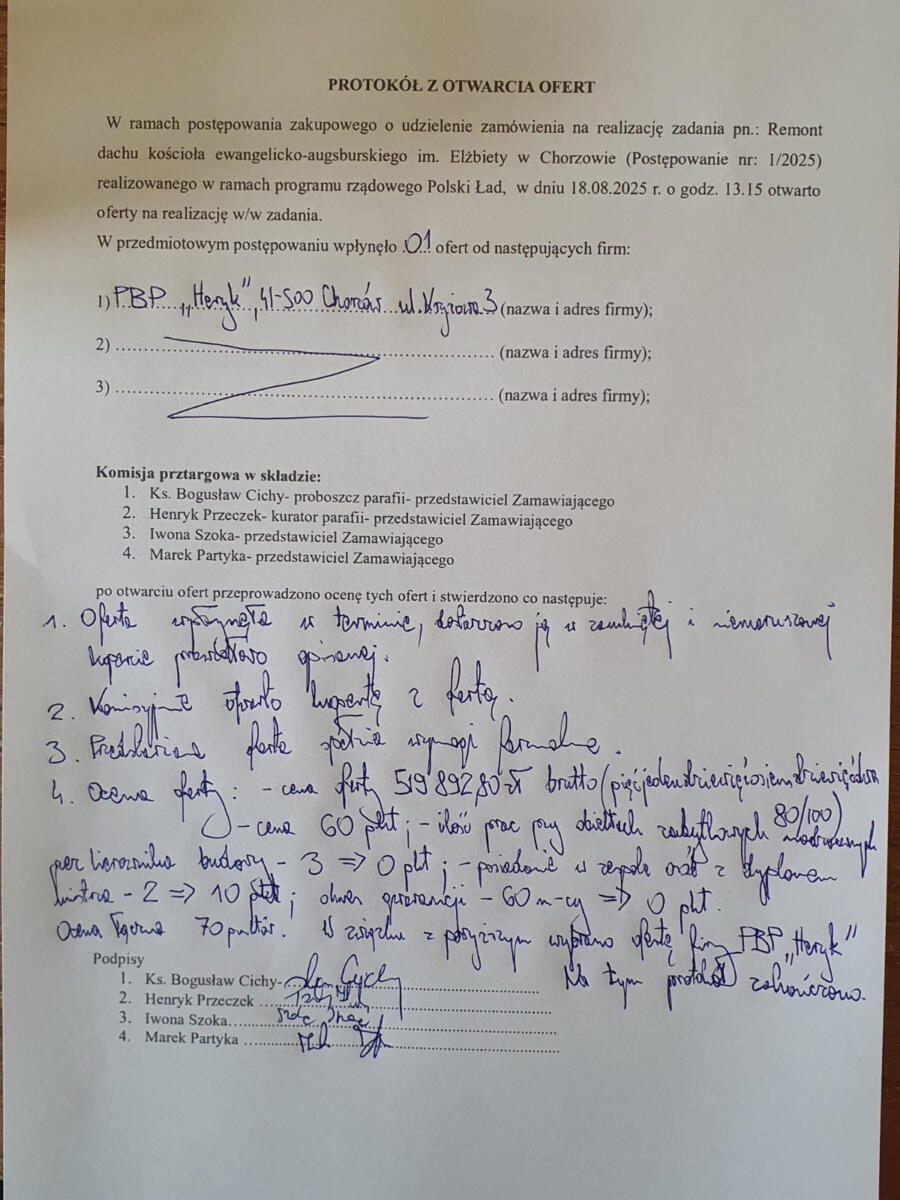 PROTOKÓŁ Z OTWARCIA OFERT
W ramach postępowania zakupowego o udzielenie zamówienia na realizację zadania pn.: Remont
dachu kościoła ewangelicko-augsburskiego im. Elżbiety w Chorzowie (Postępowanie nr: 1/2025)
realizowanego w ramach programu rządowego Polski Ład, w dniu 18.08.2025 r. o godz. 13.15 otwarto
oferty na realizację w/w zadania.
W przedmiotowym postępowaniu wpłynęło 01 ofert od następujących firm:
1) PBP „Heryk", 41-500 Chorzów ul. Krzyżowa 3 (nazwa i adres firmy);
2) ........ (nazwa i adres firmy);
3) ........ (nazwa i adres firmy);
Komisja prztargowa w składzie:
1. Ks. Bogusław Cichy- proboszcz parafii- przedstawiciel Zamawiającego
2. Henryk Przeczek- kurator parafii- przedstawiciel Zamawiającego
3. Iwona Szoka- przedstawiciel Zamawiającego
4. Marek Partyka- przedstawiciel Zamawiającego
po otwarciu ofert przeprowadzono ocenę tych ofert i stwierdzono co następuje:
1. Oferta wpłynęła w terminie, dostarczono ją w zamkniętej i nienaruszonej
kopercie prawidłowo opisanej.
2. Komisyjnie otwarto kopertę z ofertą.
3. Przedstawiona oferta spełnia wymogi formalne.
4. Ocena oferty: - cena oferty 519 892,80 zł brutto (pięćjedendziewięćosiemdziewięćdwa
80/100)
- cena 60 pkt; - ilość prac przy obiektach zabytkowych nadzorowanych
przez kierownika budowy - 3 => 0 pkt; - posiadanie w zespole osób z dyplomem
mistrza - 2 => 10 pkt; okres gwarancji - 60 m-cy => 0 pkt.
Ocena łączna 70 punktów. W związku z powyższym wybrano ofertę firmy PBP „Heryk"
Na tym protokół zakończono.
Podpisy
1. Ks. Bogusław Cichy-
2. Henryk Przeczek
3. Iwona Szoka
4. Marek Partyka